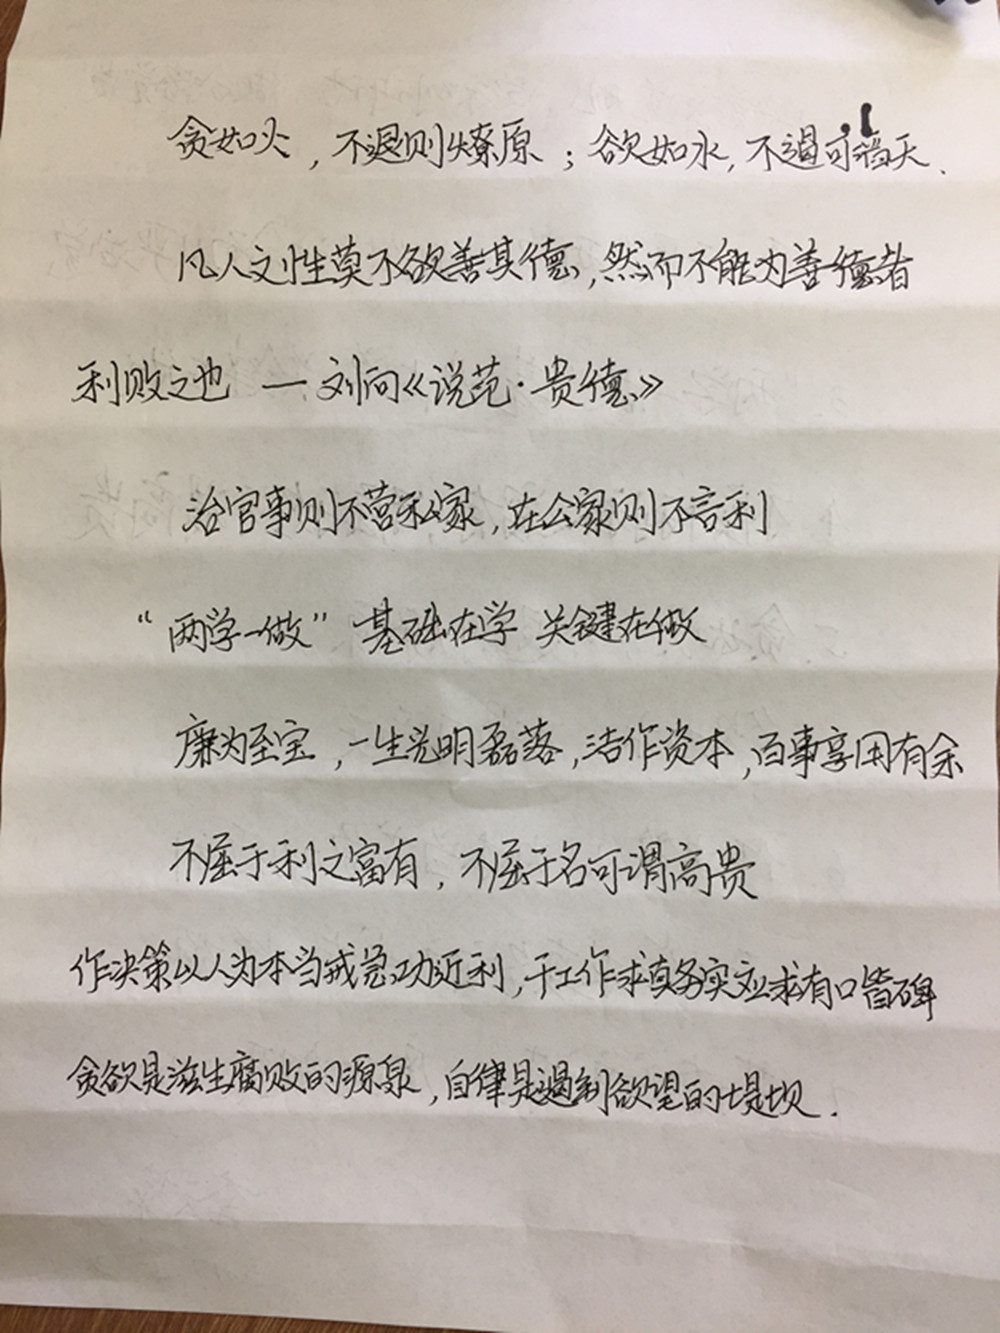 贪如火，不退则燎原；欲如水，不遏可滔天.
凡人之性莫不欲善其德，然而不能为善德者
利败之也 — 刘向《说范·贵德》
治官事则不营私家，在公家则不言利
“两学一做” 基础在学 关键在做
廉为至宝，一生光明磊落，洁作资本，百事享用有余
不屈于利之富有，不屈于名可谓高贵
作决策以人为本当戒急功近利，干工作求真务实应求有口皆碑
贪欲是滋生腐败的源泉，自律是遏制欲望的堤坝.